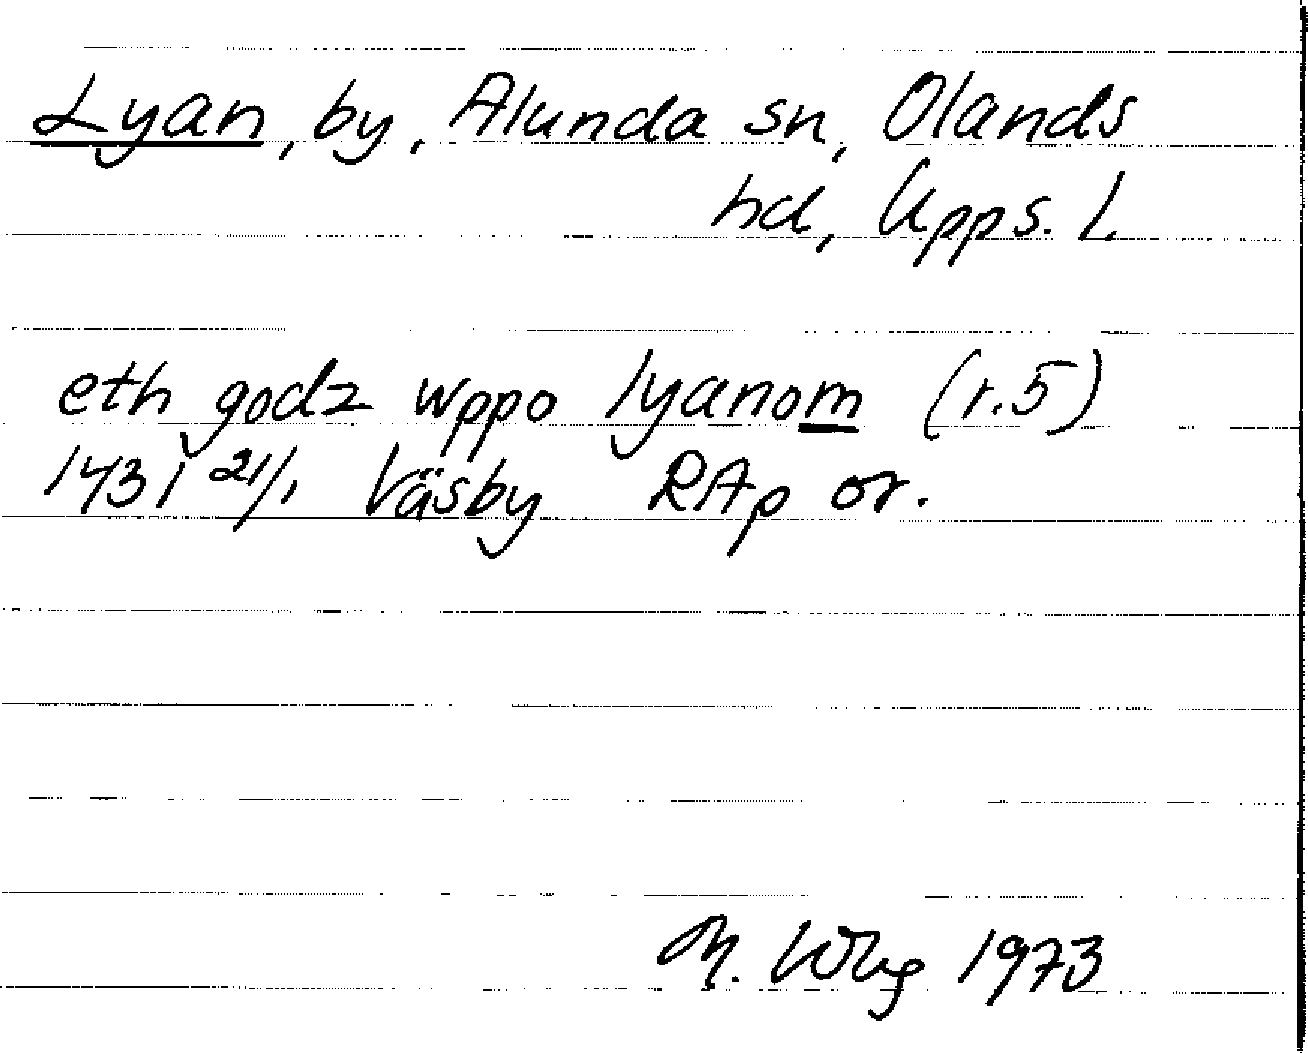 Lyan, by, Alunda sn, Olands
hd, Upps. L
eth godz wppo lyanom (r.5)
1431 21/1 Väsby RAp or.
M. Wbg 1973